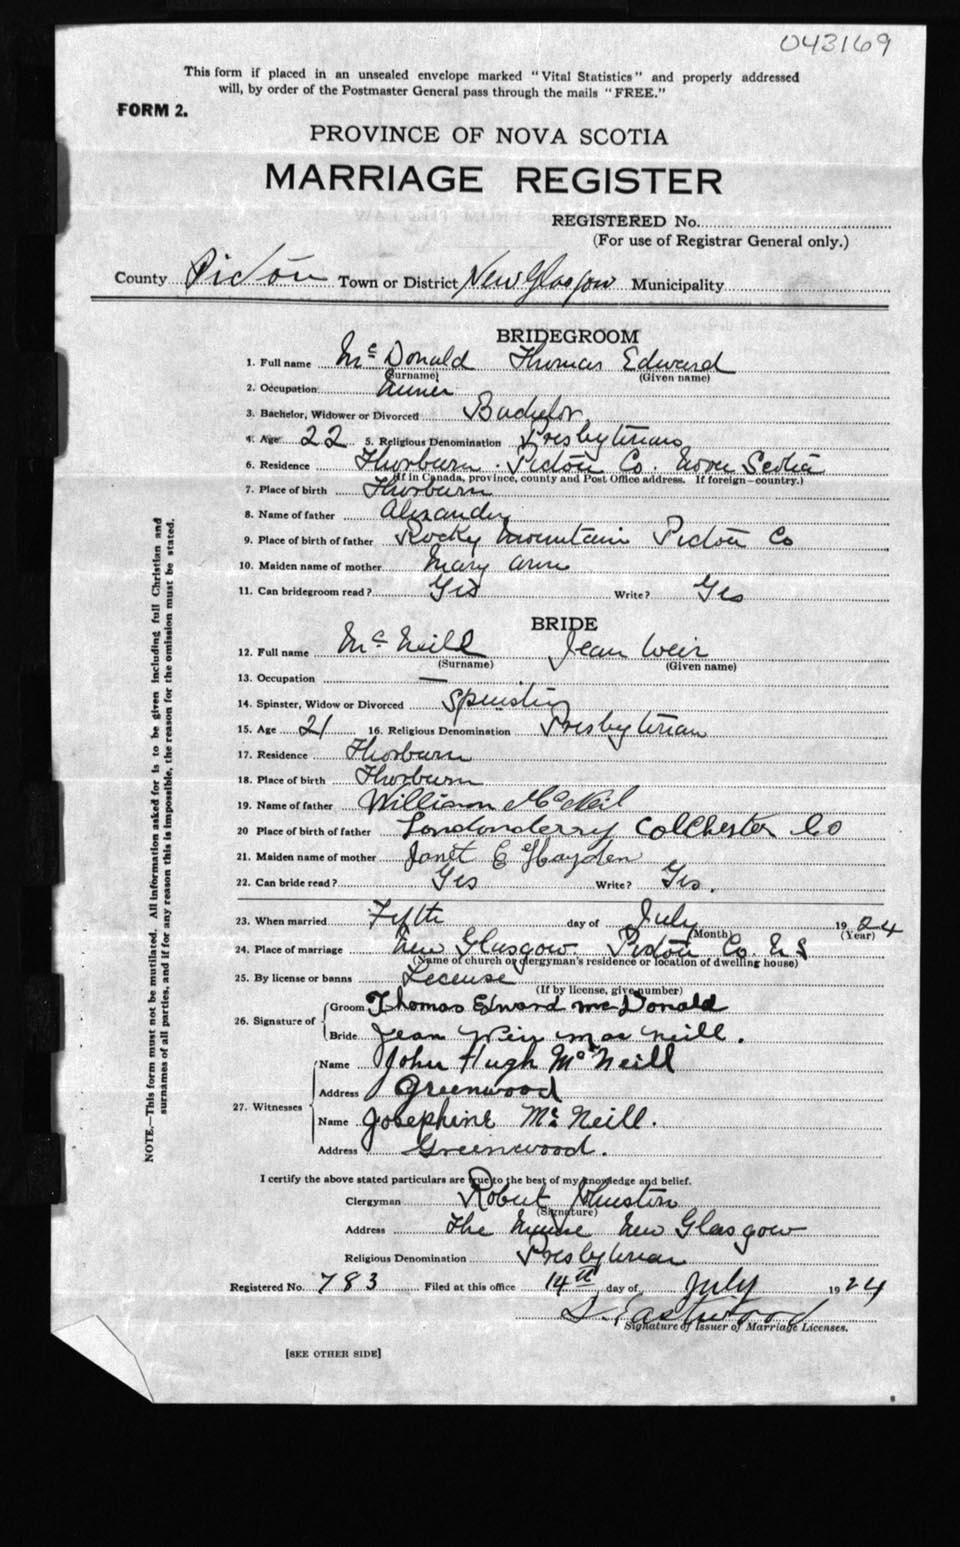 043169
This form if placed in an unsealed envelope marked "Vital Statistics" and properly addressed
will, by order of the Postmaster General pass through the mails "FREE."
FORM 2.
PROVINCE OF NOVA SCOTIA
MARRIAGE REGISTER
REGISTERED No.
(For use of Registrar General only.)
County Pictou Town or District New Glasgow Municipality
BRIDEGROOM
1. Full name McDonald Thomas Edward
(Surname) (Given name)
2. Occupation Miner
3. Bachelor, Widower or Divorced Bachelor
4. Age 22 5. Religious Denomination Presbyterian
6. Residence Thorburn. Pictou Co. Nova Scotia
(If in Canada, province, county and Post Office address. If foreign—country.)
7. Place of birth Thorburn
8. Name of father Alexander
9. Place of birth of father Rocky Mountain Pictou Co
10. Maiden name of mother Mary Ann
11. Can bridegroom read? Yes Write? Yes
BRIDE
12. Full name McNeill Jean Weir
(Surname) (Given name)
13. Occupation —
14. Spinster, Widow or Divorced Spinster
15. Age 21 16. Religious Denomination Presbyterian
17. Residence Thorburn
18. Place of birth Thorburn
19. Name of father William McNeil
20 Place of birth of father Londonderry Colchester Co
21. Maiden name of mother Janet E Hayden
22. Can bride read? Yes Write? Yes.
23. When married Fifth day of July 1924
(Month) (Year)
24. Place of marriage New Glasgow. Pictou Co. N S
(Name of church or clergyman's residence or location of dwelling house)
25. By license or banns License
(If by license, give number)
26. Signature of Groom Thomas Edward McDonald
Bride Jean Weir MacNeill.
27. Witnesses Name John Hugh McNeill
Address Greenwood
Name Josephine McNeill.
Address Greenwood.
I certify the above stated particulars are true to the best of my knowledge and belief.
Clergyman Robert Johnston
(Signature)
Address The Manse New Glasgow
Religious Denomination Presbyterian
Registered No. 783 Filed at this office 14th day of July 1924
Eastwood
Signature of Issuer of Marriage Licenses.
[SEE OTHER SIDE]
NOTE.—This form must not be mutilated. All information asked for is to be given including full Christian and
surnames of all parties, and if for any reason this is impossible, the reason for the omission must be stated.